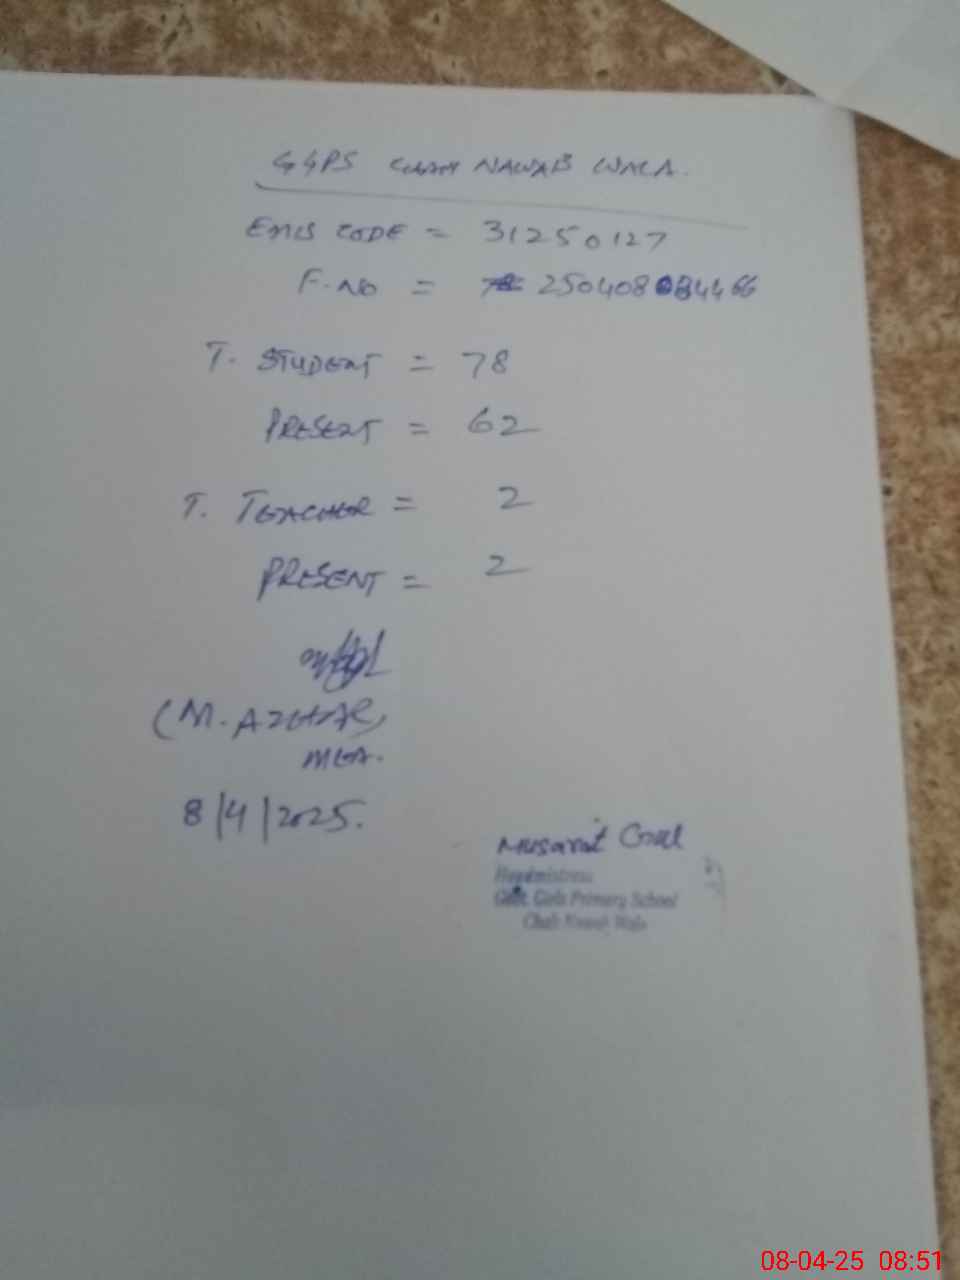 GGPS CHAH NAWAB WALA.
EMIS CODE = 31250127
F. NO = 250408084466
T. STUDENT = 78
PRESENT = 62
T. TEACHER = 2
PRESENT = 2
(M. AZHAR)
MEA.
8/4/2025.
Musarat
Headmistress
Govt. Girls Primary School
Chah Nawab Wala
08-04-25 08:51